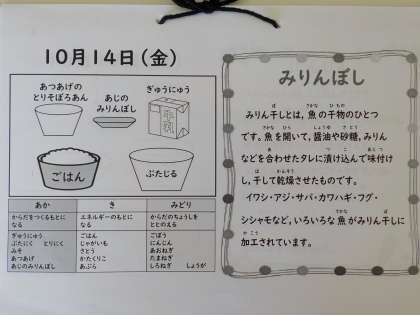 10月14日(金)
あつあげの
とりそぼろあん
あじの
みりんぼし
ぎゅうにゅう
牛乳
ごはん
ぶたじる
あか き みどり
からだをつくるもとに
なる
エネルギーのもとに
なる
からだのちょうしを
ととのえる
ぎゅうにゅう ごはん ごぼう
ぶたにく とりにく じゃがいも にんじん
みそ さとう あおねぎ
あつあげ かたくりこ たまねぎ
あじのみりんぼし あぶら しろねぎ しょうが
みりんぼし
みりん干しとは、魚の干物のひとつ
です。魚を開いて、醤油や砂糖、みりん
などを合わせたタレに漬け込んで味付け
し、干して乾燥させたものです。
イワシ・アジ・サバ・カワハギ・フグ・
シシャモなど、いろいろな魚がみりん干しに
加工されています。